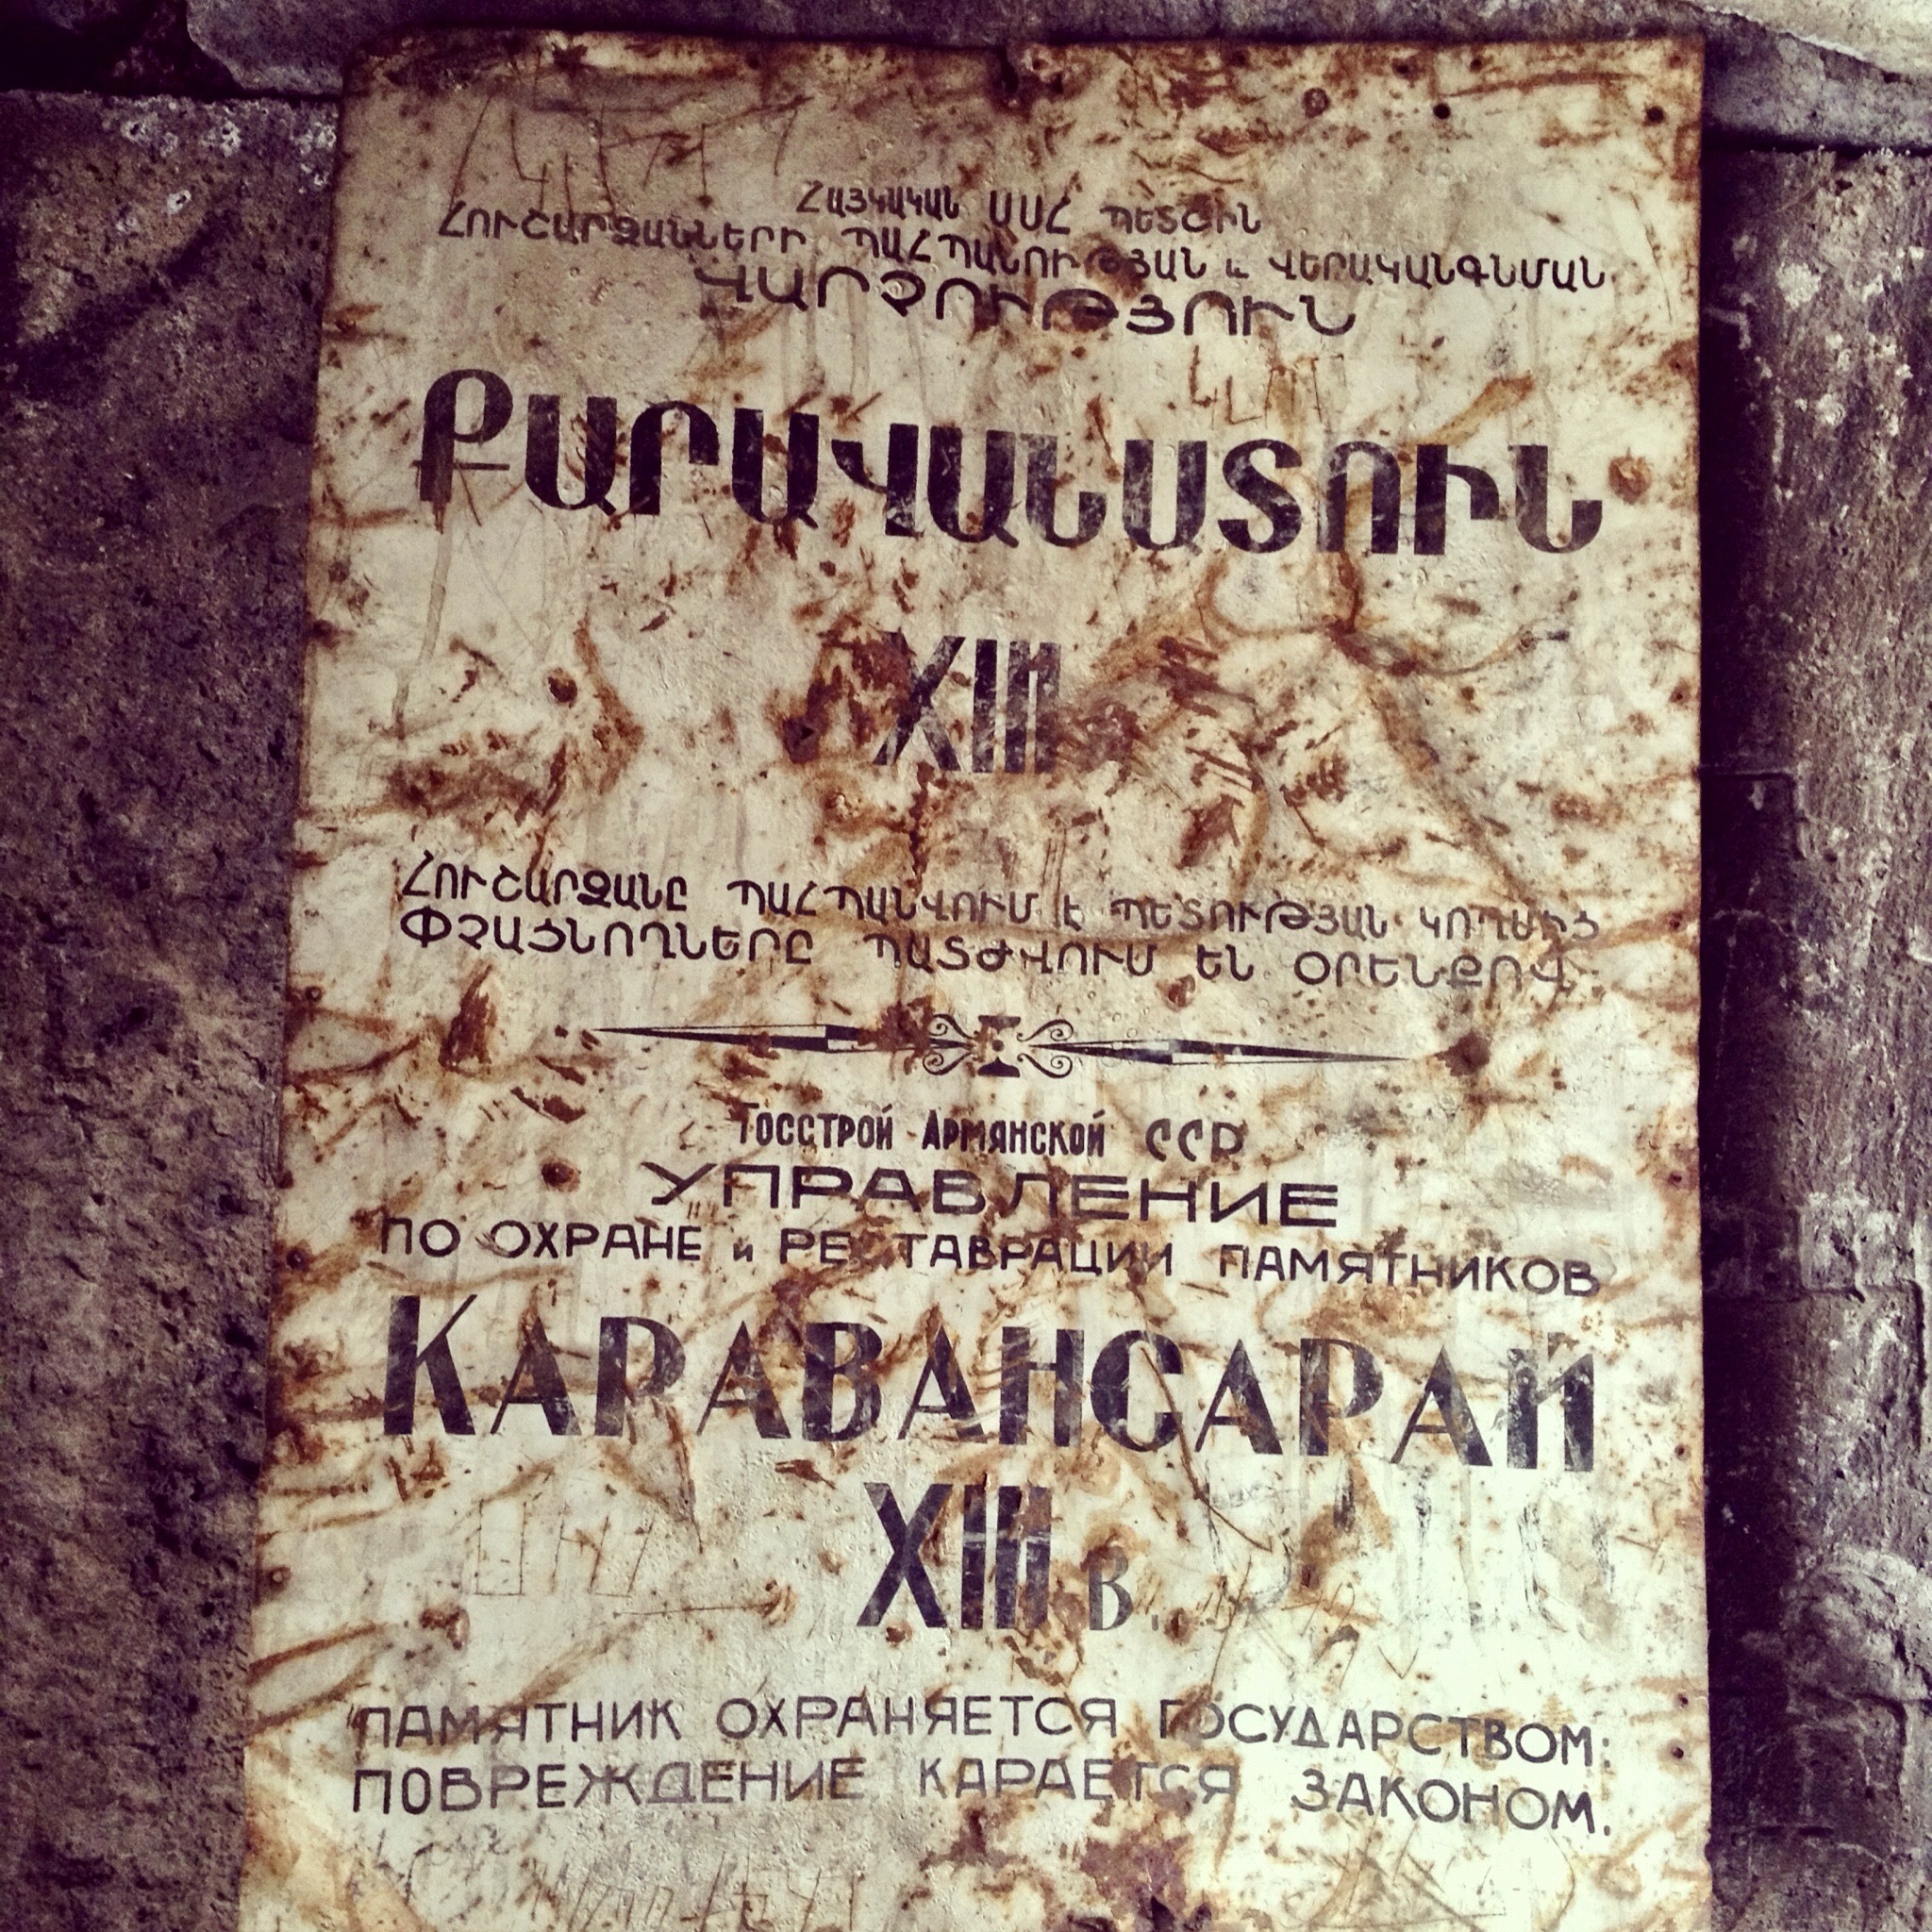 ՀԱՅԿԱԿԱՆ ՍՍՀ ՊԵՏՇԻՆ
ՀՈՒՇԱՐՁԱՆՆԵՐԻ ՊԱՀՊԱՆՈՒԹՅԱՆ և ՎԵՐԱԿԱՆԳՆՄԱՆ
ՎԱՐՉՈՒԹՅՈՒՆ
ՔԱՐԱՎԱՆԱՏՈՒՆ
XIII
ՀՈՒՇԱՐՁԱՆԸ ՊԱՀՊԱՆՎՈՒՄ Է ՊԵՏՈՒԹՅԱՆ ԿՈՂՄԻՑ
ՓՉԱՑՆՈՂՆԵՐԸ ՊԱՏԺՎՈՒՄ ԵՆ ՕՐԵՆՔՈՎ
ГОССТРОЙ АРМЯНСКОЙ ССР
УПРАВЛЕНИЕ
ПО ОХРАНЕ и РЕСТАВРАЦИИ ПАМЯТНИКОВ
КАРАВАНСАРАЙ
XIII В.
ПАМЯТНИК ОХРАНЯЕТСЯ ГОСУДАРСТВОМ:
ПОВРЕЖДЕНИЕ КАРАЕТСЯ ЗАКОНОМ.